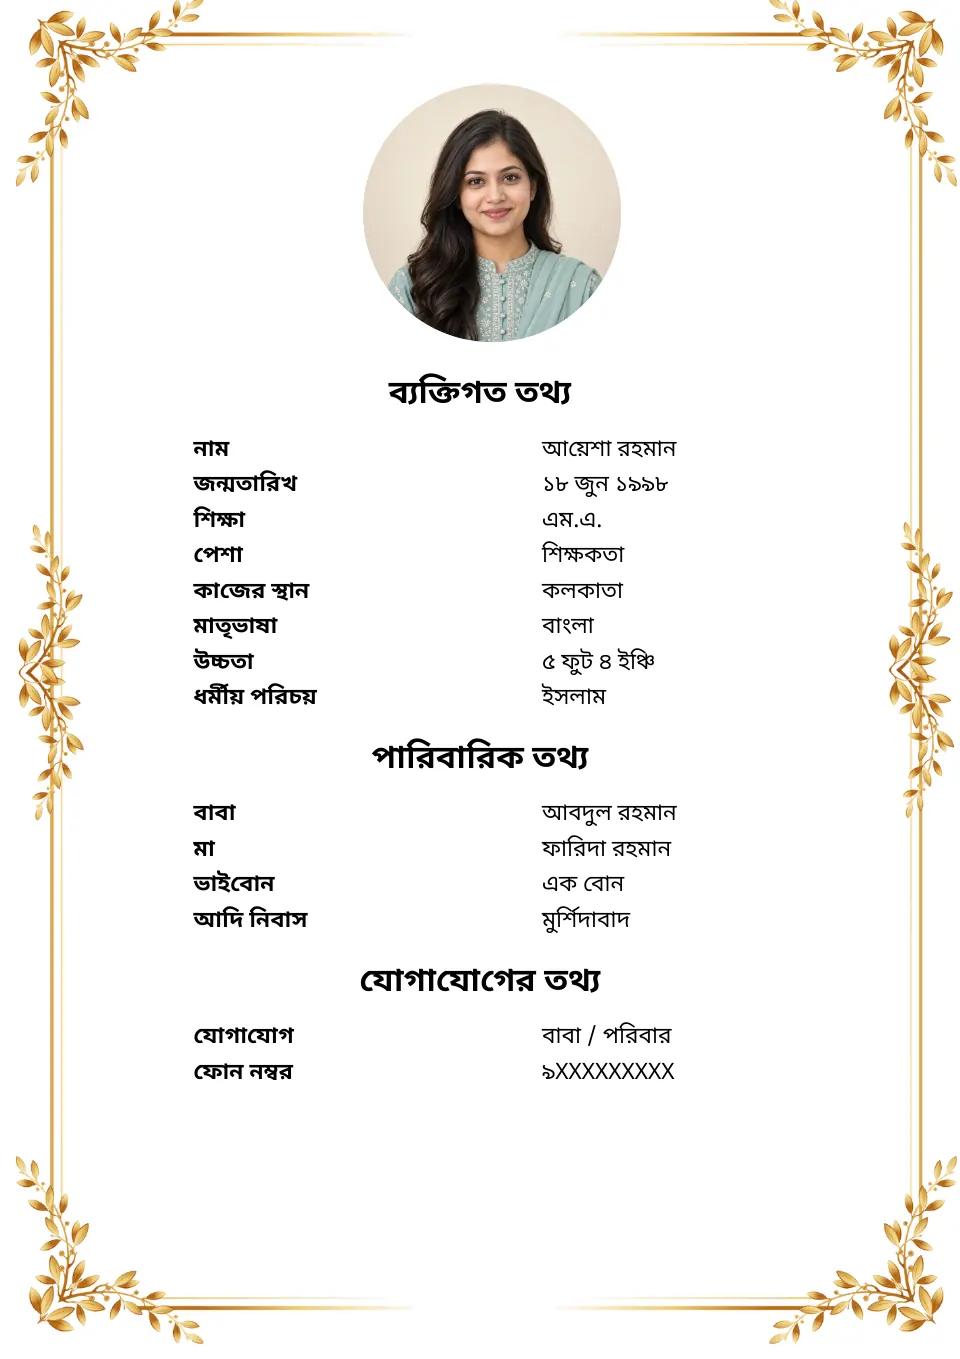 ব্যক্তিগত তথ্য
নাম আয়েশা রহমান
জন্মতারিখ ১৮ জুন ১৯৯৮
শিক্ষা এম.এ.
পেশা শিক্ষকতা
কাজের স্থান কলকাতা
মাতৃভাষা বাংলা
উচ্চতা ৫ ফুট ৪ ইঞ্চি
ধর্মীয় পরিচয় ইসলাম
পারিবারিক তথ্য
বাবা আবদুল রহমান
মা ফারিদা রহমান
ভাইবোন এক বোন
আদি নিবাস মুর্শিদাবাদ
যোগাযোগের তথ্য
যোগাযোগ বাবা / পরিবার
ফোন নম্বর ৯XXXXXXXXX